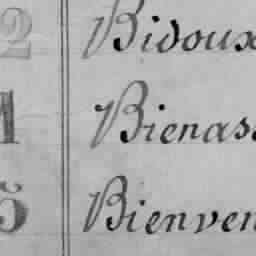 2 Bidoux
1 Bienass
5 Bienven